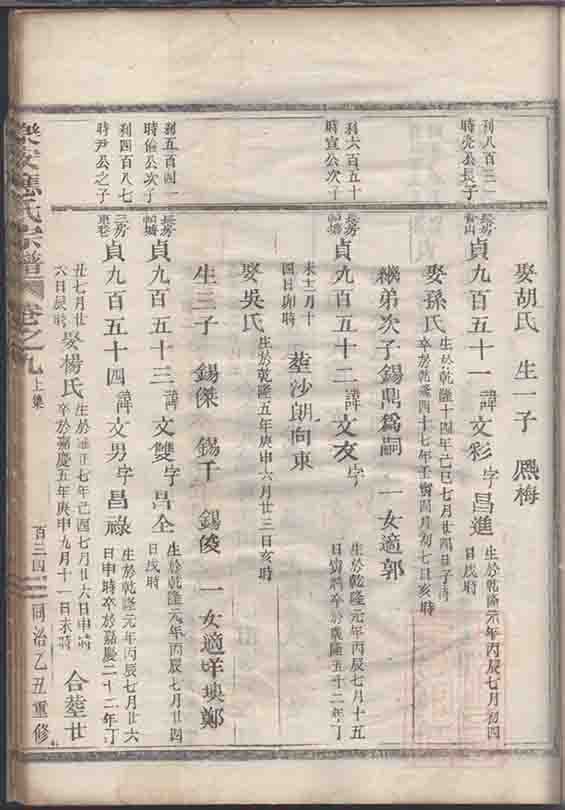 娶胡氏 生一子 熈梅
利八百三一
時亮公長子
長房
貞九百五十一 諱文彩 字昌進 生於乾隆元年丙辰七月初四
日戌時
娶孫氏 生於乾隆十四年己巳七月廿四日子時
卒於乾隆四十七年壬寅四月初七日亥時
繼弟次子錫鼎爲嗣 一女適郭
利六百五十
時宣公次子
長房
貞九百五十二 諱文友 字 生於乾隆元年丙辰七月十五
日寅時卒於乾隆五十二年丁
未十二月十
四日卯時 塟沙朗向東
娶吳氏 生於乾隆五年庚申六月廿三日亥時
生三子 錫傑 錫千 錫俊 一女適垟墺鄭
利五百四一
時倫公次子
長房
貞九百五十三 諱文雙 字昌全 生於乾隆元年丙辰七月廿四
日戌時
利四百八七
時尹公之子
三房
東巷
貞九百五十四 諱文男 字昌祿 生於乾隆元年丙辰七月廿六
日申時卒於嘉慶二十二年丁
丑七月廿
六日辰時 娶楊氏 生於雍正七年己酉七月廿六日申時
卒於嘉慶五年庚申九月十一日未時 合塟廿
樂安應氏宗譜 卷之九 上集 百三四 同治乙丑重修